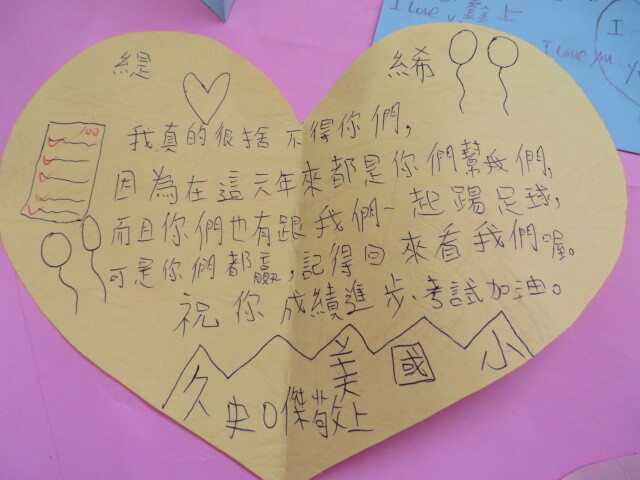 緹 絺
100
我真的很捨不得你們,
因為在這六年來都是你們幫我們,
而且你們也有跟我們一起踢足球,
可是你們都贏,記得回來看我們喔。
祝你成績進步、考試加油。
久美國小
史O傑敬上
I love 上
I love you
I